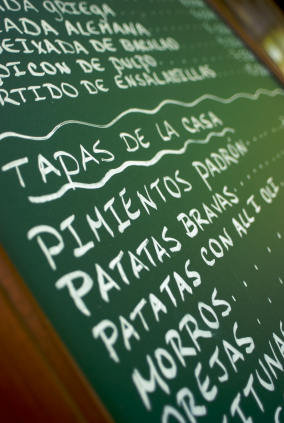 ADA GRIEGA
ADA ALEMANA
ESEIXADA DE BACALAO
PICON DE PULPO
RTIDO DE ENSALADILLAS
TAPAS DE LA CASA
PIMIENTOS PADRÓN
PATATAS BRAVAS
PATATAS CON ALLI OLI
MORROS
OREJAS
ITUNAS